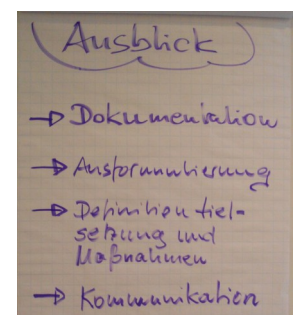 Ausblick
→ Dokumentation
→ Ausformulierung
→ Definition Ziel-
setzung und
Maßnahmen
→ Kommunikation